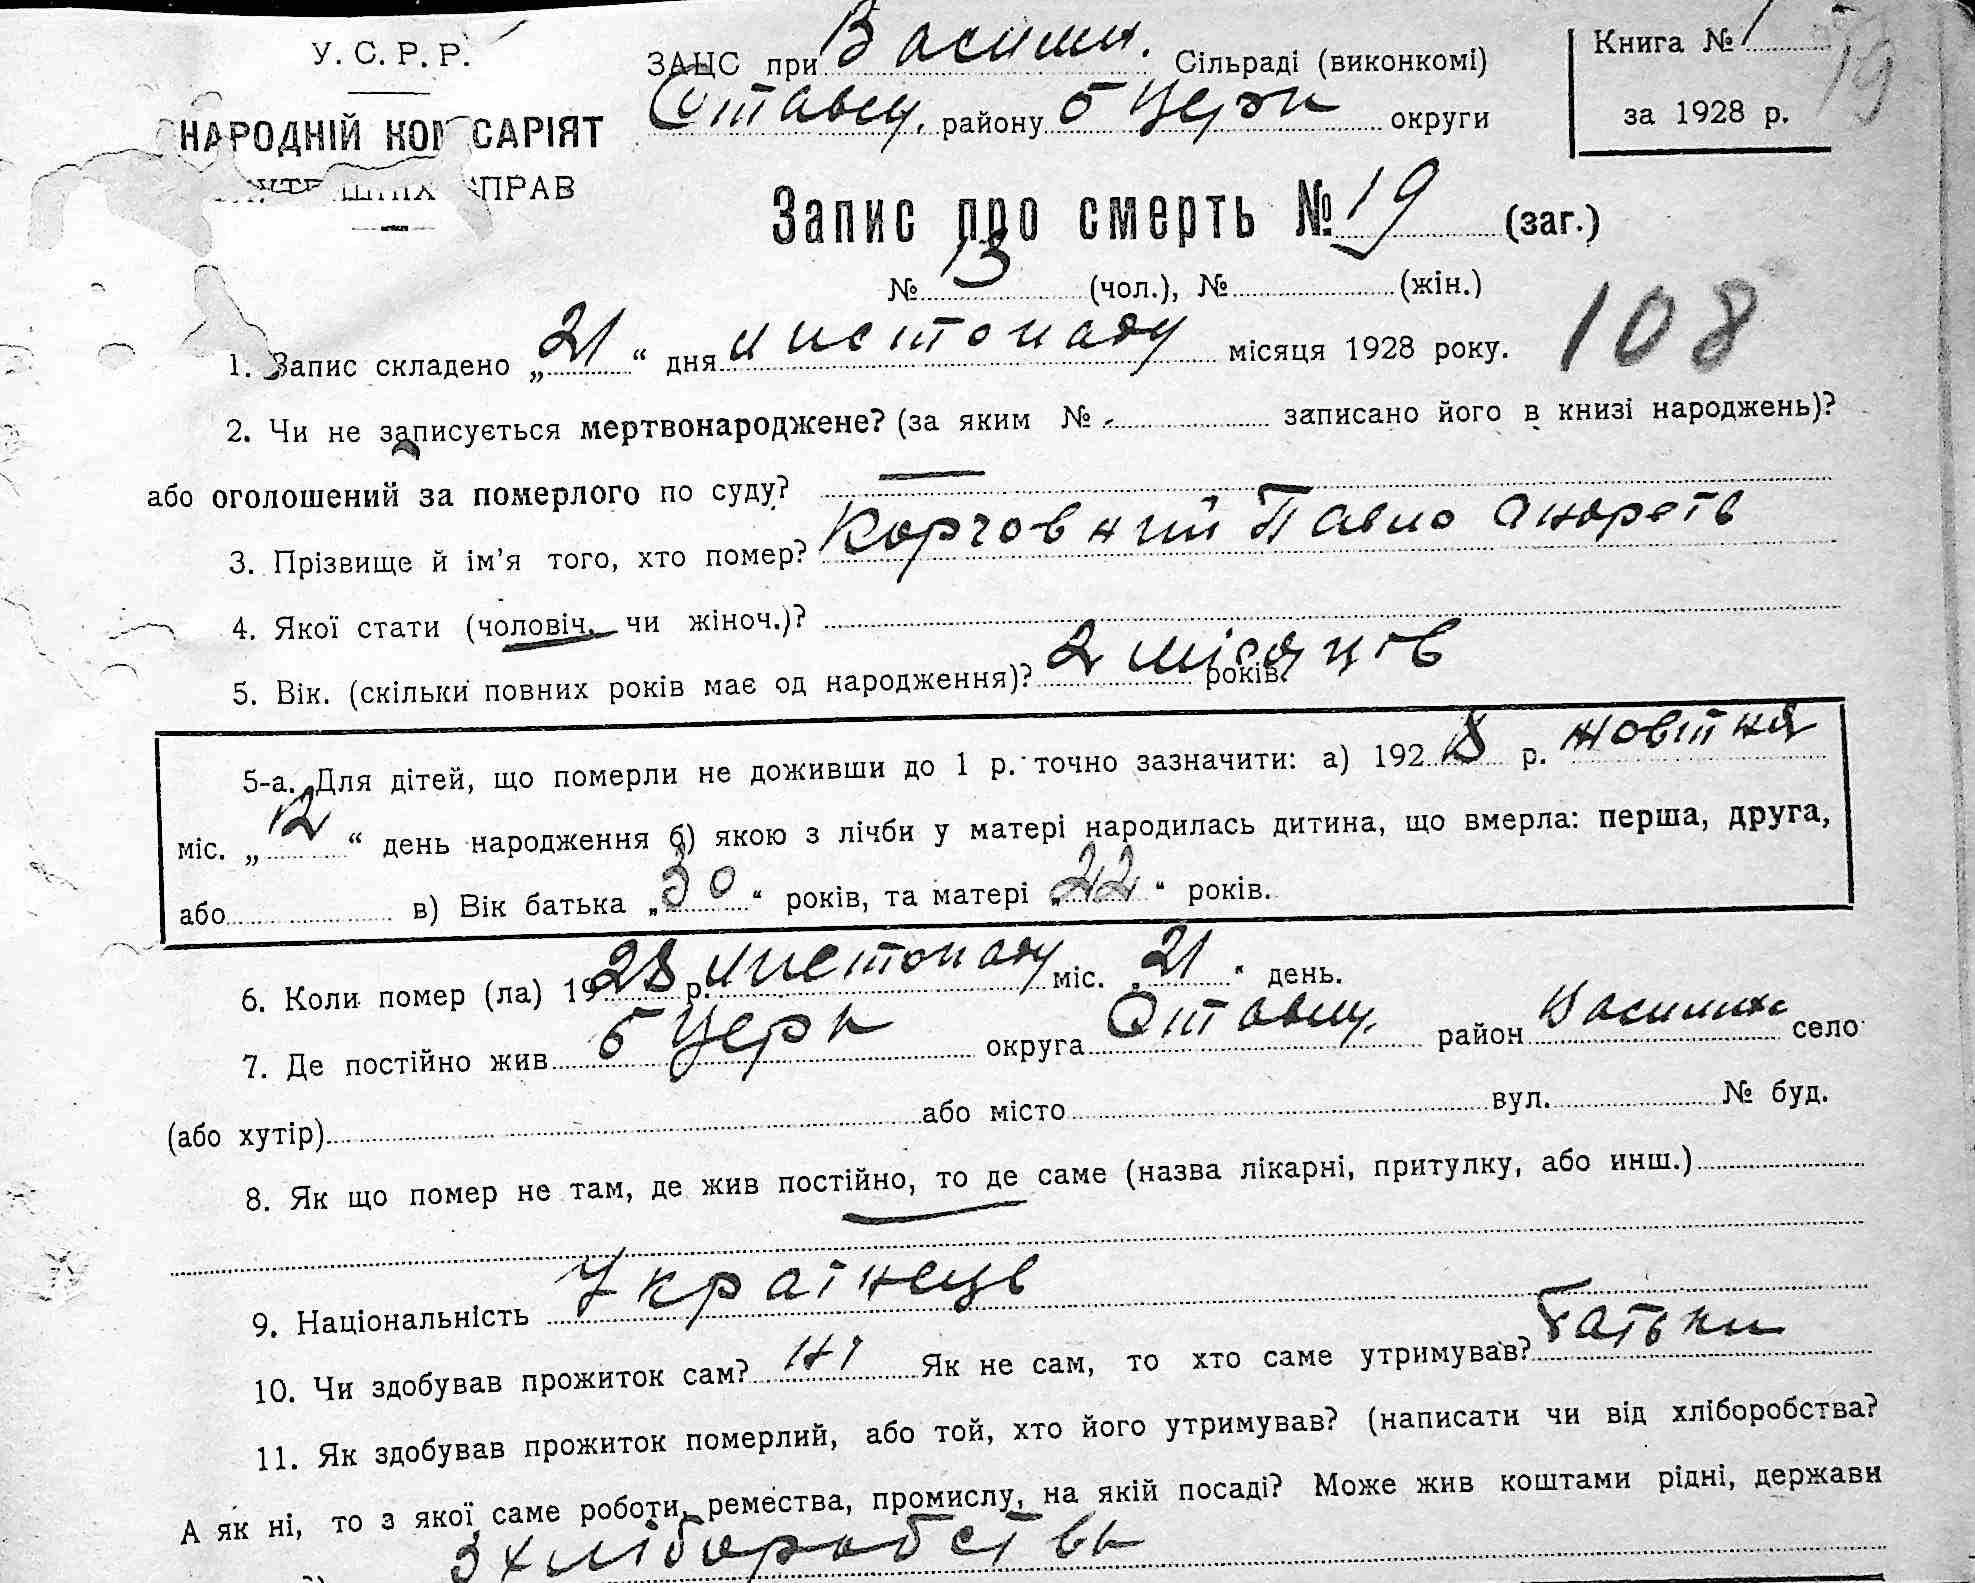 У. С. Р. Р.
НАРОДНІЙ КОМ САРІЯТ
СПРАВ
ЗАЦС при Васили. Сільраді (виконкомі)
Ставищ. району Б Церк округи
Книга № 1
за 1928 р.
19
Запис про смерть № 19 (заг.)
№ 13 (чол.), № (жін.)
108
1. Запис складено „21“ дня листопаду місяця 1928 року.
2. Чи не записується мертвонароджене? (за яким № - записано його в книзі народжень)?
або оголошений за померлого по суду? —
3. Прізвище й ім'я того, хто помер? Корчовний Павло Андреїв
4. Якої стати (чоловіч. чи жіноч.)?
5. Вік. (скільки повних років має од народження)? 2 місяців років.
5-а. Для дітей, що померли не доживши до 1 р. точно зазначити: а) 1928 р. жовтня
міс. „12“ день народження б) якою з лічби у матері народилась дитина, що вмерла: перша, друга,
або в) Вік батька „30“ років, та матері „22“ років.
6. Коли помер (ла) 1928 р. листопаду міс. „21“ день.
7. Де постійно жив Б Церк округа Ставищ. район Василиха село
(або хутір) або місто вул. № буд.
8. Як що помер не там, де жив постійно, то де саме (назва лікарні, притулку, або инш.)
9. Національність Українець
10. Чи здобував прожиток сам? Ні Як не сам, то хто саме утримував? Батьки
11. Як здобував прожиток померлий, або той, хто його утримував? (написати чи від хліборобства?
А як ні, то з якої саме роботи, ремества, промислу, на якій посаді? Може жив коштами рідні, держави
З хліборобства